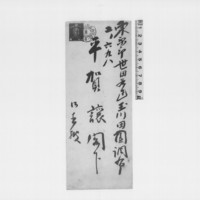 東京市世田谷区玉川田園調布
二ノ六九八
平賀讓閣下